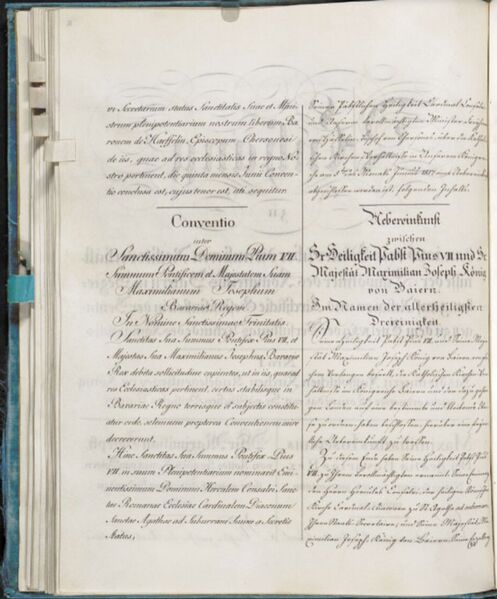 vi Secretarium status Sanctitatis Suae et Mini
strum plenipotentiarium nostrum liberum Ba
ronem de Haeffelin, Episcopum Chersonensi
de iis, quae ad res ecclesiasticas in regno No
stro pertinent, die quinta mensis Junii Conven
tio conclusa est, cujus tenor est, uti sequitur.
Conventio
inter
Sanctissimum Dominum Pium VII.
Summum Pontificem et Majestatem Suam
Maximilianum Josephum
Bavariae Regem
In Nomine Sanctissimae Trinitatis.
Sanctitas Sua Summus Pontifex Pius VII, et
Majestas Sua Maximilianus Josephus Bavariae
Rex debita sollicitudine cupientes, ut in iis, quae ad
res Ecclesiasticas pertinent, certus stabilisque in
Bavariae Regno terrisque ei subjectis constitu
atur ordo, solemnem propterea Conventionem inire
decreverunt.
Hinc Sanctitas Sua Summus Pontifex Pius
VII. in suum Plenipotentiarium nominavit Emi
nentissimum Dominum Herculem Consalvi Sanc
tae Romanae Ecclesiae Cardinalem Diaconum
Sanctae Agathae ad Suburram Suum a Secretis
Status;
Seiner Päbstlichen Heiligkeit Cardinal
und Unserm bevollmächtigten Minister
von Häffelin, Bischof von Chersones, über die
chen Kirchen-Verhältnisse in Unserm König
reiche am 5ten des Monats Junius 1817 eine Uebereinkunft
abgeschlossen worden ist, folgenden Inhalts.
Uebereinkunft
zwischen
Sr Heiligkeit Pabst Pius VII und Sr
Majestät Maximilian Joseph König
von Baiern.
Im Namen der allerheiligsten
Dreieinigkeit.
Seine Heiligkeit Pabst Pius VII. und Seine Maje
stät Maximilian Joseph König von Baiern
Kirche
im Königreiche Baiern und den dazu gehö
rigen Landen auf eine bestimmte
Uebereinkunft zu treffen.
Zu diesem Ende haben Seine Heiligkeit Pabst Pius
VII. zu Ihrem Bevollmächtigten ernannt Seine Eminenz
den Herrn Hercules Consalvi, der heiligen Römischen
Kirche Cardinal, Diakon zu St Agatha ad suburram
Ihren Staats-Secretaire, und Seine Majestät Ma
ximilian Joseph, König von Baiern, Seine Excellenz